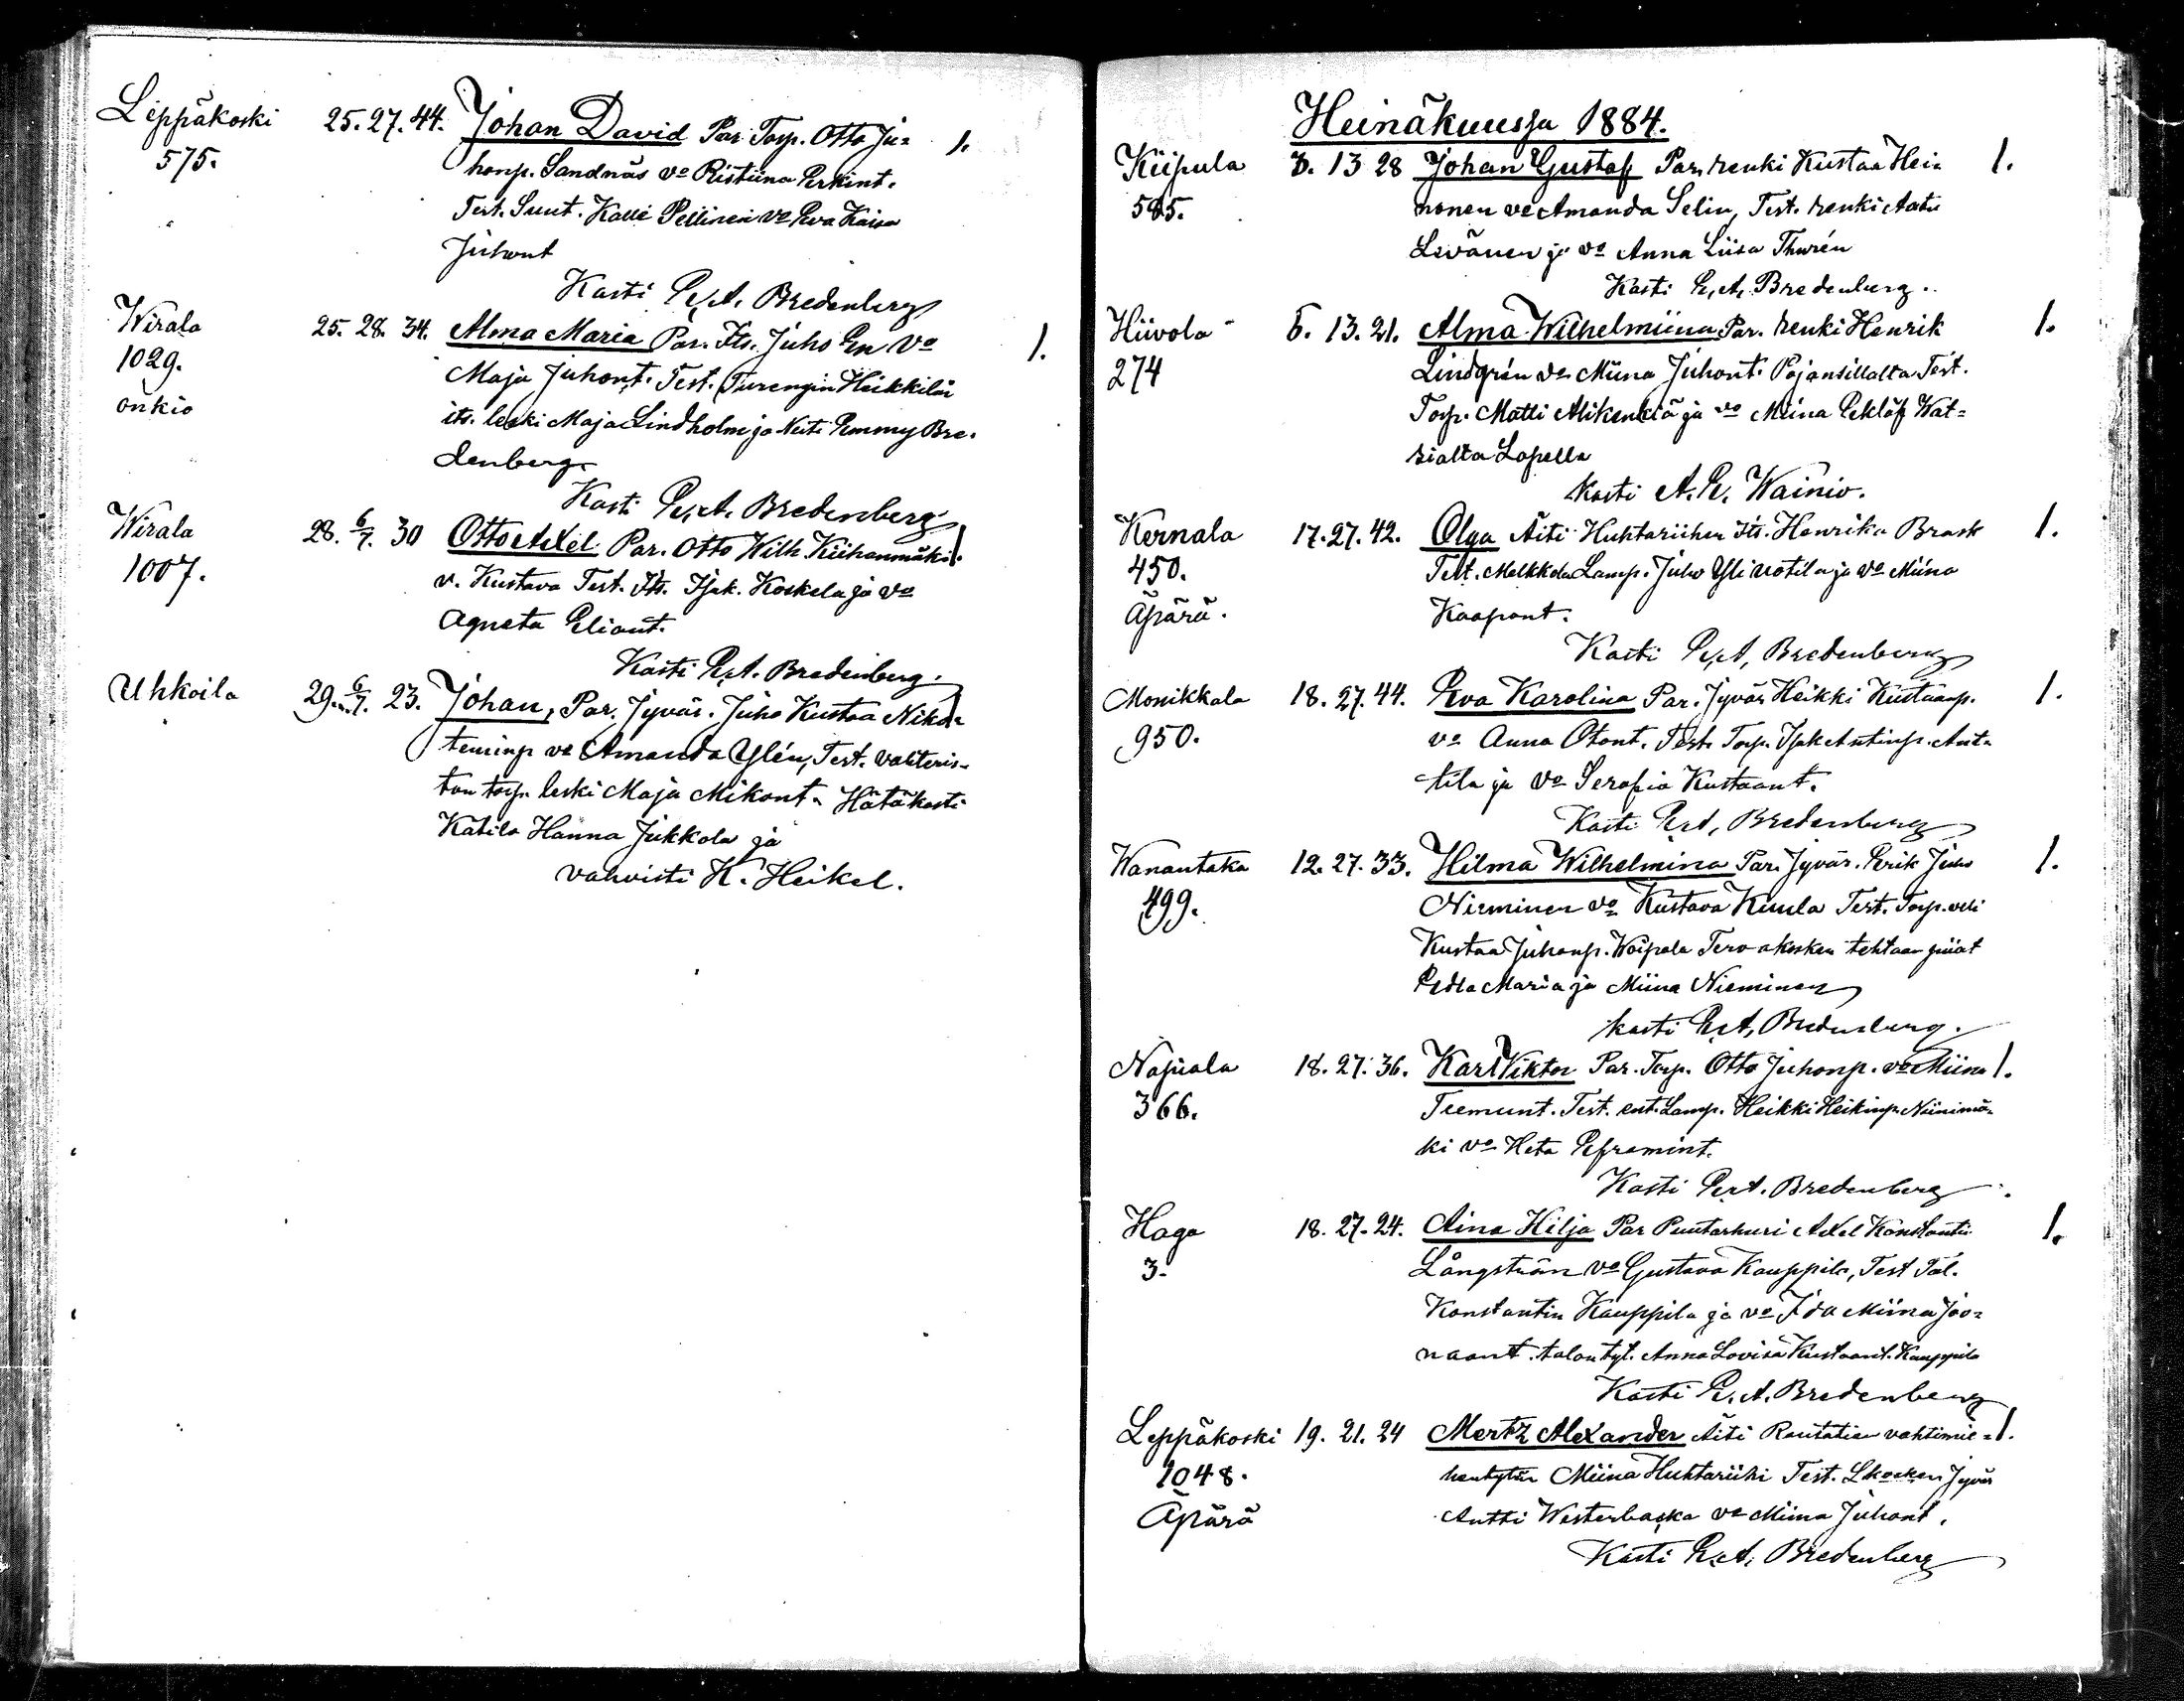 Leppäkoski 25. 27. 44. Johan David Par. Torp. Otto Ju= 1.
575. honp. Sandnäs vo Ristiina Erkint.
Test. Suut. Kalle Pellinen vo Eva Kaisa
Juhont
Kasti E. A. Bredenberg
Wirala 25. 28. 34. Alma Maria Par. Its. Juho En vo 1.
1029. Maja Juhont. Test. Turengin Heikkilän
önkiö its. leski Maja Lindholm ja Neiti Emmy Bre.
denberg.
Kasti E. A. Bredenberg
Wirala 28. 6/7. 30 Otto Axel Par. Otto Wilh. Kiihanmäki 1.
1007. v. Kustava Test. Its. Isak. Koskela ja vo
Agneta Eliant.
Kasti E. A. Bredenberg.
Uhkoila 29. 6/7. 23. Johan, Par. Jyvär. Juho Kustaa Niko= 1
teminp vo Amanda Ylén, Test.
ton torp. leski Maja Mikont. Hätäkasti
Katilo Hanna Jukkola ja
vahvisti K. Heikel.
Heinäkuussa 1884.
Kiipula 6. 13 28 Johan Gustaf Par. renki Kustaa Hei= 1.
595. nonen vo Amanda Selin, Test. renki Aatu
Levänen ja vo Anna Liisa Thurén
Kasti E. A. Bredenberg.
Hiivola 6. 13. 21. Alma Wilhelmiina Par. renki Henrik 1.
274 Lindgrén vo Miina Juhont. Pajansillalta Test.
Torp. Matti Alikenkiä ja vo Miina Eklöf Wat=
sialta Lopella
Kasti A. E. Wainio.
Kernala 17. 27. 42. Olga Äiti Huhtariihen Its. Henrika Brask 1.
450. Test. Melkkola Lamp. Juho Ylinotila ja vo Miina
Äpärä. Kaapont.
Kasti E. A. Bredenberg
Monikkala 18. 27. 44. Eva Karolina Par. Jyvär Heikki Kustaanp. 1.
950. vo Anna Otont. Test. Torp. Isak Antinp. Ant=
tila ja vo Serafia Kustaant.
Kasti E. A. Bredenberg
Wanantaka 12. 27. 33. Hilma Wilhelmina Par. Jyvär. Erik Juho 1.
499. Nieminen vo Kustava Kuula Test. Torp. veli
Kustaa Juhonp. Woipala Tervakosken tehtaan piiat
Edla Maria ja Miina Nieminen
Kasti E. A. Bredenberg.
Napiala 18. 27. 36. Karl Viktor Par. Torp. Otto Juhonp. vo Miina 1.
366. Teemunt. Test. ent. Lamp. Heikki Heikinp. Niinimä=
ki vo Heta Efremint.
Kasti E. A. Bredenberg.
Haga 18. 27. 24. Aina Hilja Par Puutarhuri Axel Konstantin 1.
3. Långström vo Gustava Kauppila, Test Tal.
Konstantin Kauppila ja vo Ida Miina Joo=
naant. talon tyt. Anna Lovisa Kustaant. Kauppila
Kasti E. A. Bredenberg
Leppäkoski 19. 21. 24 Mertz Alexander Äiti Rautatien vahtimie= 1.
1048. hentytär Miina Huhtariihi Test. Lkosken Jyvär
Äpärä Antti Westerbacka vo Miina Juhont.
Kasti E. A. Bredenberg